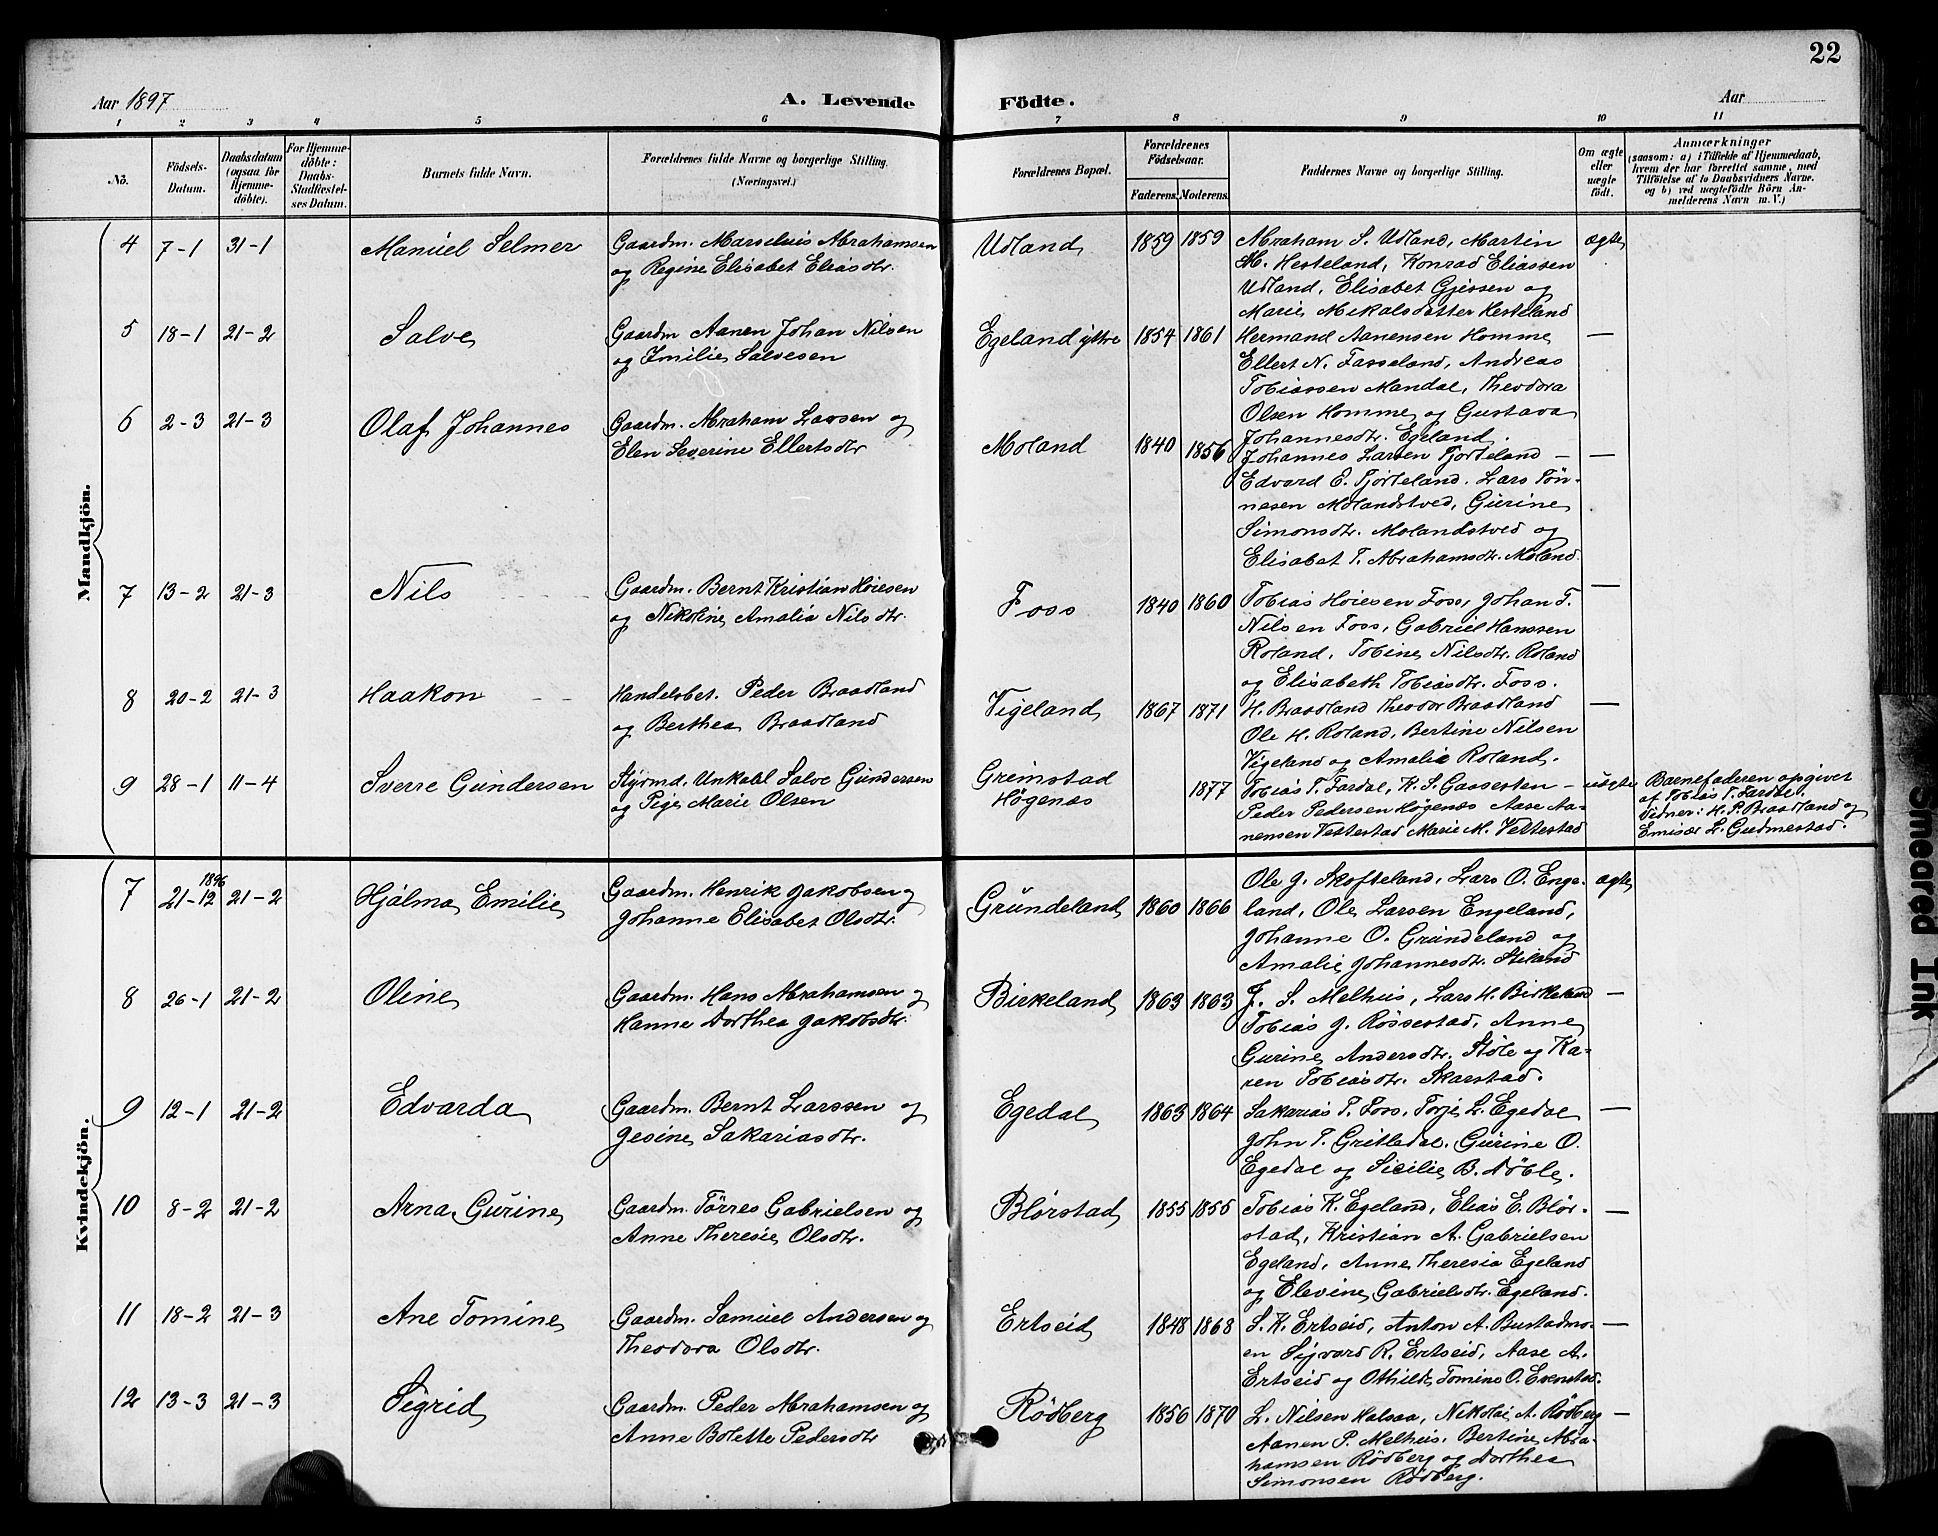 22
Aar 1897
A. Levende Födte.
Aar
1 2 3 4 5 6 7 8 9 10 11
No.
Födsels-Datum.
Daabsdatum (ogsaa for Hjemmedöbte).
For Hjemmedöbte: Daabs-Stadfæstelses Datum.
Barnets fulde Navn.
Forældrenes fulde Navne og borgerlige Stilling. (Næringsvei.)
Forældrenes Bopæl.
Forældrenes Födselsaar.
Faderens. Moderens.
Faddernes Navne og borgerlige Stilling.
Om ægte eller uægte födt.
Anmærkninger
(saasom: a) i Tilfælde af Hjemmedaab, hvem der har forrettet samme, med Tilföielse af to Daabsvidners Navne, og b) ved uægtefödte Börn Anmelderens Navn m. V.)
Mandkjön.
4 7-1 31-1 Manuel Selmer
Gaardm. Marselius Abrahamsen
og Regine Elisabet Eliasdtr.
Udland 1859 1859
Abraham S. Udland, Martin
M. Hesteland, Konrad Eliassen
Udland, Elisabet Gjessen og
Marie Mikalsdatter Hesteland
ægte
5 18-1 21-2 Salve
Gaardm Aanen Johan Nilsen
og Emilie Salvesen
Egeland ytre 1854 1861
Hermand Aanensen Homme
Ellert N. Fasseland, Andreas
Tobiassen Mandal, Theodora
Olsen Homme og Gustava
Johannesdtr. Egeland.
—
6 2-3 21-3 Olaf Johannes
Gaardm. Abraham Larsen og
Elen Severine Ellertsdtr
Moland 1840 1856
Johannes Larsen Tjorteland —
Edvard E. Tjorteland. Lars Tön-
nesen Molandstved, Gurine
Simonsdtr. Molandstved og
Elisabet T. Abrahamsdtr. Moland.
—
7 13-2 21-3 Nils
Gaardm. Bernt Kristian Høiesen
og Nikoline Amalia Nilsdtr.
Foss 1840 1860
Tobias Høiesen Foss, Johan T.
Nilsen Foss, Gabriel Hanssen
Roland, Tobine Nilsdtr. Roland
og Elisabeth Tobiasdtr. Foss.
—
8 20-2 21-3 Haakon
Handelsbet. Peder Braadland
og Berthea Braadland
Vigeland 1867 1871
H. Braadland Theodor Braadland
Ole H. Roland, Bertine Nilsen
Vigeland og Amalie Roland.
—
9 28-1 11-4 Sverre Gundersen
Styrmd. Unkarl Salve Gundersen
og Pige Marie Olsen
Grimstad
Høgenæs
1877
Tobias T. Fardal, K. S. Gaasesten —
Peder Pedersen Høgenæs Aase Aa-
nensen Vettestad Marie M. Vettestad
uægte
Barnefaderen opgivet
af Tobias T. Fardal.
Vidner: H. P. Braadland og
Emisær L. Gudmestad.
Kvindekjön.
7 21-12 1896 21-2 Hjalma Emilie
Gaardm. Henrik Jakobsen og
Johanne Elisabet Olsdtr.
Grundeland 1860 1866
Ole J. Skofteland, Lars O. Enge-
land, Ole Larsen Engeland,
Johanne O. Grundeland og
Amalie Johannesdtr. Stiland
ægte
8 26-1 21-2 Oline
Gaardm. Hans Abrahamsen og
Hanne Dorthea Jakobsdtr.
Birkeland 1863 1863
J. S. Melhus, Lars H. Birkeland
Tobias J. Røssestad, Anne
Gurine Andersdtr. Støle og Ka-
ren Tobiasdtr. Skarstad.
—
9 12-1 21-2 Edvarda
Gaardm. Bernt Larssen og
Gesine Sakariasdtr.
Egedal 1863 1864
Sakarias T. Foss, Torje L. Egedal
John T. Gritledal. Gurine O.
Egedal og Sicilie B. Døble.
—
10 8-2 21-2 Arna Gurine
Gaardm. Tørres Gabrielsen og
Anne Theresie Olsdtr.
Blørstad 1855 1855
Tobias K. Egeland, Elias E. Blør-
stad, Kristian A. Gabrielsen
Egeland, Anne Theresia Egeland
og Elevine Gabrielsdtr. Egeland.
—
11 18-2 21-3 Ane Tomine
Gaardm. Samuel Andersen og
Theodora Olsdtr.
Ertseid 1848 1868
S. K. Ertseid, Anton A. Bustadmo-
en Sigvard R. Ertseid, Aase A.
Ertseid og Othilde Tomine O. Evenstad.
—
12 13-3 21-3 Sigrid
Gaardm. Peder Abrahamsen og
Anne Bolette Pedersdtr
Rödberg 1856 1870
L. Nilsen Halsaa, Nikolai A. Rödberg
Aanen P. Melhus. Bertine Abra-
hamsen Rödberg og Dorthea
Simonsen Rödberg.
—
Smeared Ink